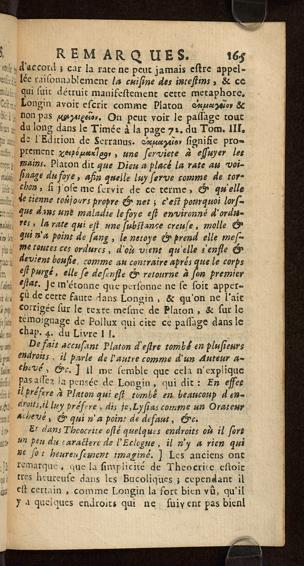 REMARQUES. 165
d'accord ; car la rate ne peut jamais estre appel-
lée raisonnablement la cuisine des intestins, & ce
qui suit détruit manifestement cette metaphore.
Longin avoit escrit comme Platon ἐκμαγεῖον &
non pas μαγειρεῖον. On peut voir le passage tout
du long dans le Timée à la page 72. du Tom. III.
de l'Edition de Serranus. ἐκμαγεῖον signifie pro-
prement χειρόμακτρον, une serviete à essuyer les
mains. Platon dit que Dieu a placé la rate au voi-
sinage du foye, afin quelle luy serve comme de tor-
chon, si j'ose me servir de ce terme, & qu'elle
le tienne toûjours propre & net ; c'est pourquoi lors-
que dans une maladie le foye est environné d'ordu-
res, la rate qui est une substance creuse, molle &
qui n'a point de sang, le netoye & prend elle mes-
me toutes ces ordures, d'où vient qu'elle s'enfle &
deviens boufie. comme au contraire aprés que le corps
est purgé, elle se desenfle & retourne à son premier
estat. Je m'étonne que personne ne se soit apper-
çû de cette faute dans Longin, & qu'on ne l'ait
corrigée sur le texte mesme de Platon, & sur le
témoignage de Pollux qui cite ce passage dans le
chap. 4. du Livre II.
De fait accusant Platon d'estre tombé en plusieurs
endroits, il parle de l'autre comme d'un Auteur a-
chevé, &c. ] Il me semble que cela n'explique
pas assez la pensée de Longin, qui dit : En effet
il préfere à Platon qui est tombé en beaucoup d'en-
droits, il luy préfere, dis je, Lysias comme un Orateur
achevé, & qui n'a point de défaut, &c.
Et dans Theocrite osté quelques endroits où il sort
un peu du caractere de l'Eclogue, il n'y a rien qui
ne soit heureusement imaginé. ] Les anciens ont
remarqué, que la simplicité de Theocrite estoit
tres heureuse dans les Bucoliques ; cependant il
est certain, comme Longin l'a fort bien vû, qu'il
y a quelques endroits qui ne suivent pas bien